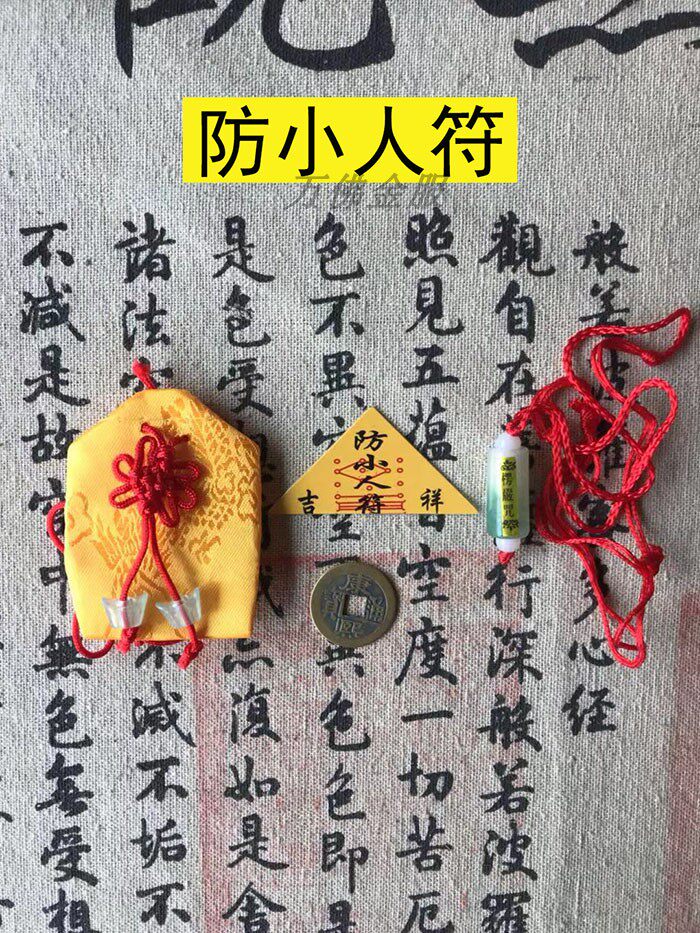 防小人符
万佛金服
般若波羅蜜多心經
觀自在 行深般若波羅
照見五蘊皆空度一切苦厄
色不異空 異色色即是
是色受想 亦復如是舍
諸法空 不減不垢不
不減是故空中無色無受想
防小人符
吉祥
康熙通寳